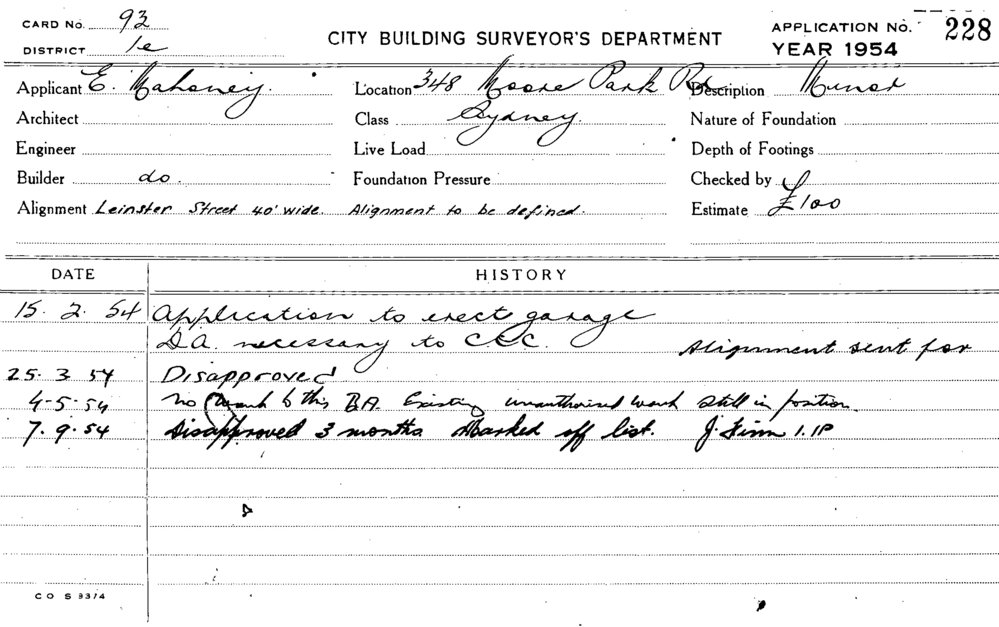 CARD No. 93
DISTRICT 1e
CITY BUILDING SURVEYOR'S DEPARTMENT
APPLICATION No. 228
YEAR 1954
Applicant E. Mahoney. Location 348 Moore Park Rd Description Minor
Architect Class Sydney. Nature of Foundation
Engineer Live Load Depth of Footings
Builder do. Foundation Pressure Checked by
Alignment Leinster Street 40' wide. Alignment to be defined. Estimate £100
DATE HISTORY
15. 2. 54 Application to erect garage
D.A. necessary to C.C.C. Alignment sent for
25. 3. 54 Disapproved
4-5-54 no work to this B.A. Existing unauthorised work still in position.
7. 9. 54 Disapproved 3 months. Marked off list. J. Finn 1.IP
C O S 93/4